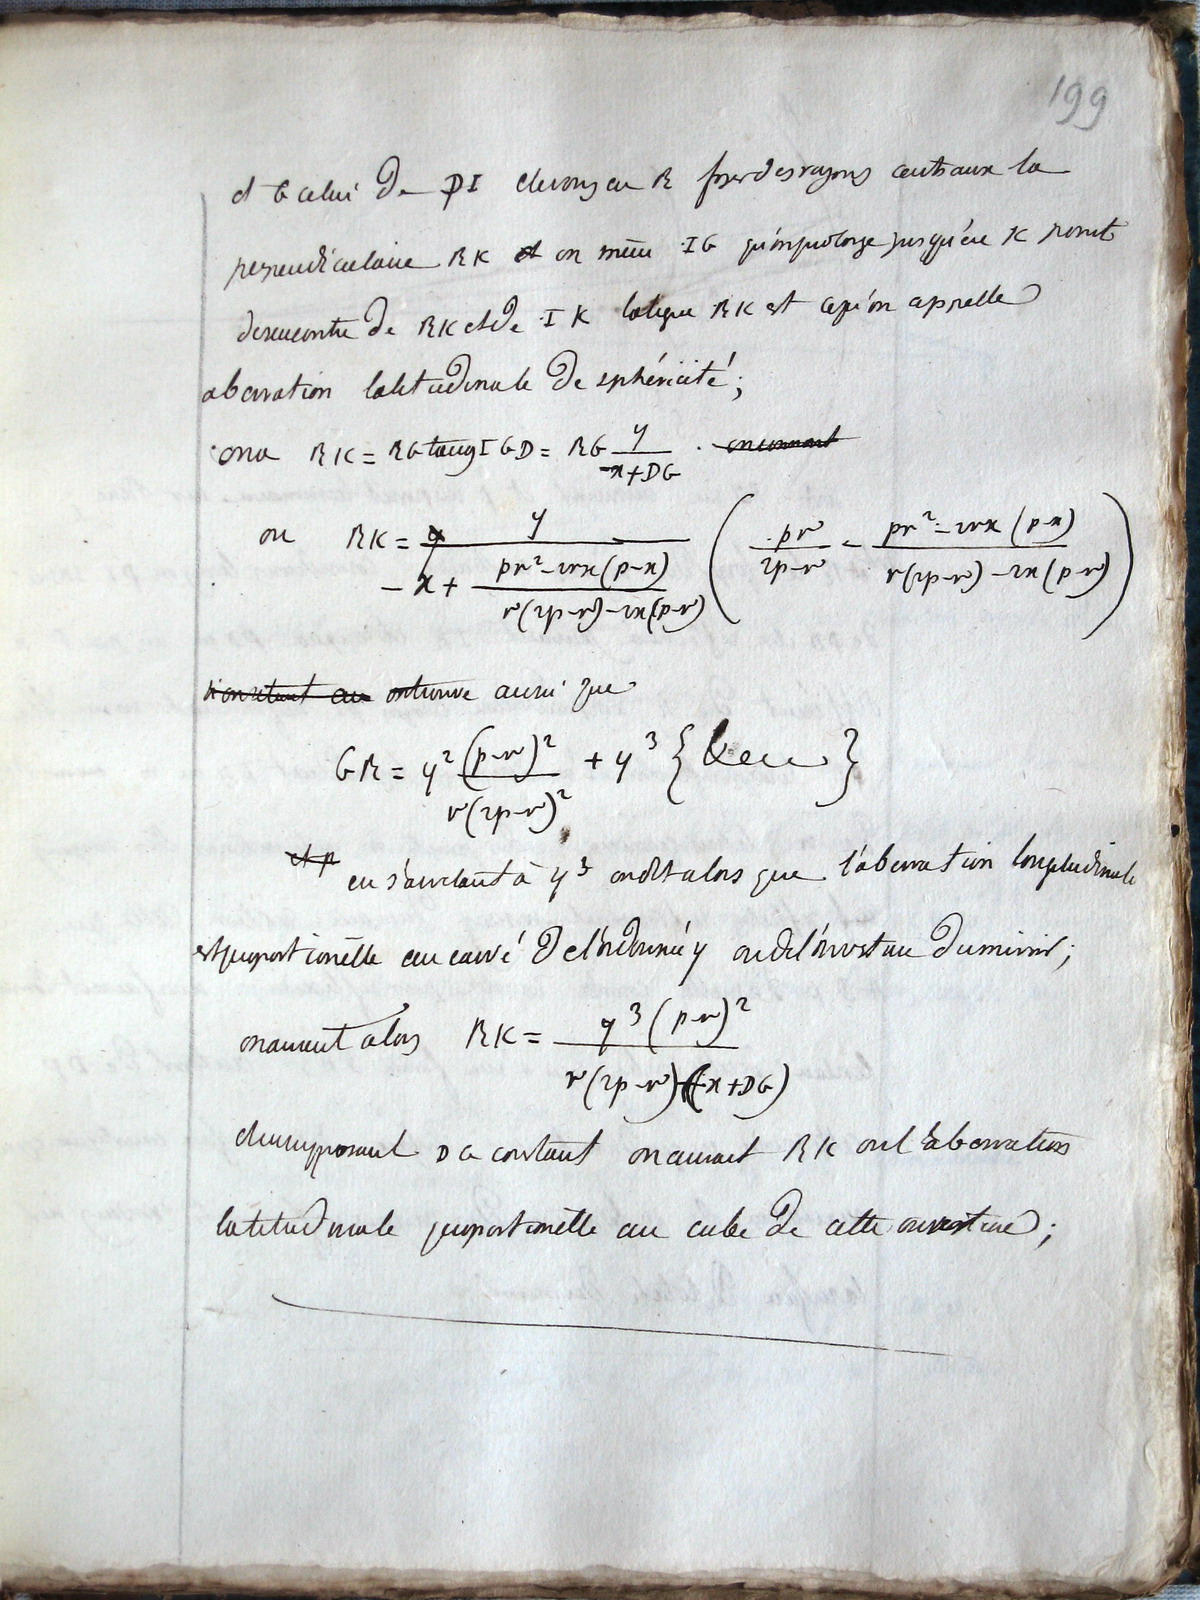 199
et G celui de PI élevons en R foyer des rayons centraux la
perpendiculaire RK et on mène IG qu'on prolonge jusqu'en K point
de rencontre de RK et de IK la ligne RK est ce qu'on appelle
aberration latitudinale de sphéricité;
on a RK = RG tang IGD = RG y/(-x+DG) .
ou RK = y/(-x + (pr²-2rx(p-x))/(r(2p-r)-2x(p-r))) (pr/(2p-r) - (pr²-2rx(p-x))/(r(2p-r)-2x(p-r)))
on trouve aussi que
GR = y² (p-r)²/(r(2p-r)²) + y³ { }
en s'arretant à y³ on dit alors que l'aberration longitudinale
est proportionelle au carré de l'ordonnée y ou de l'ouverture du miroir;
on aurait alors RK = y³(p-r)²/(r(2p-r)(-x+DG))
et en supposant DG constant on aurait RK ou l'aberration
latitudinale proportionelle au cube de cette ouverture;